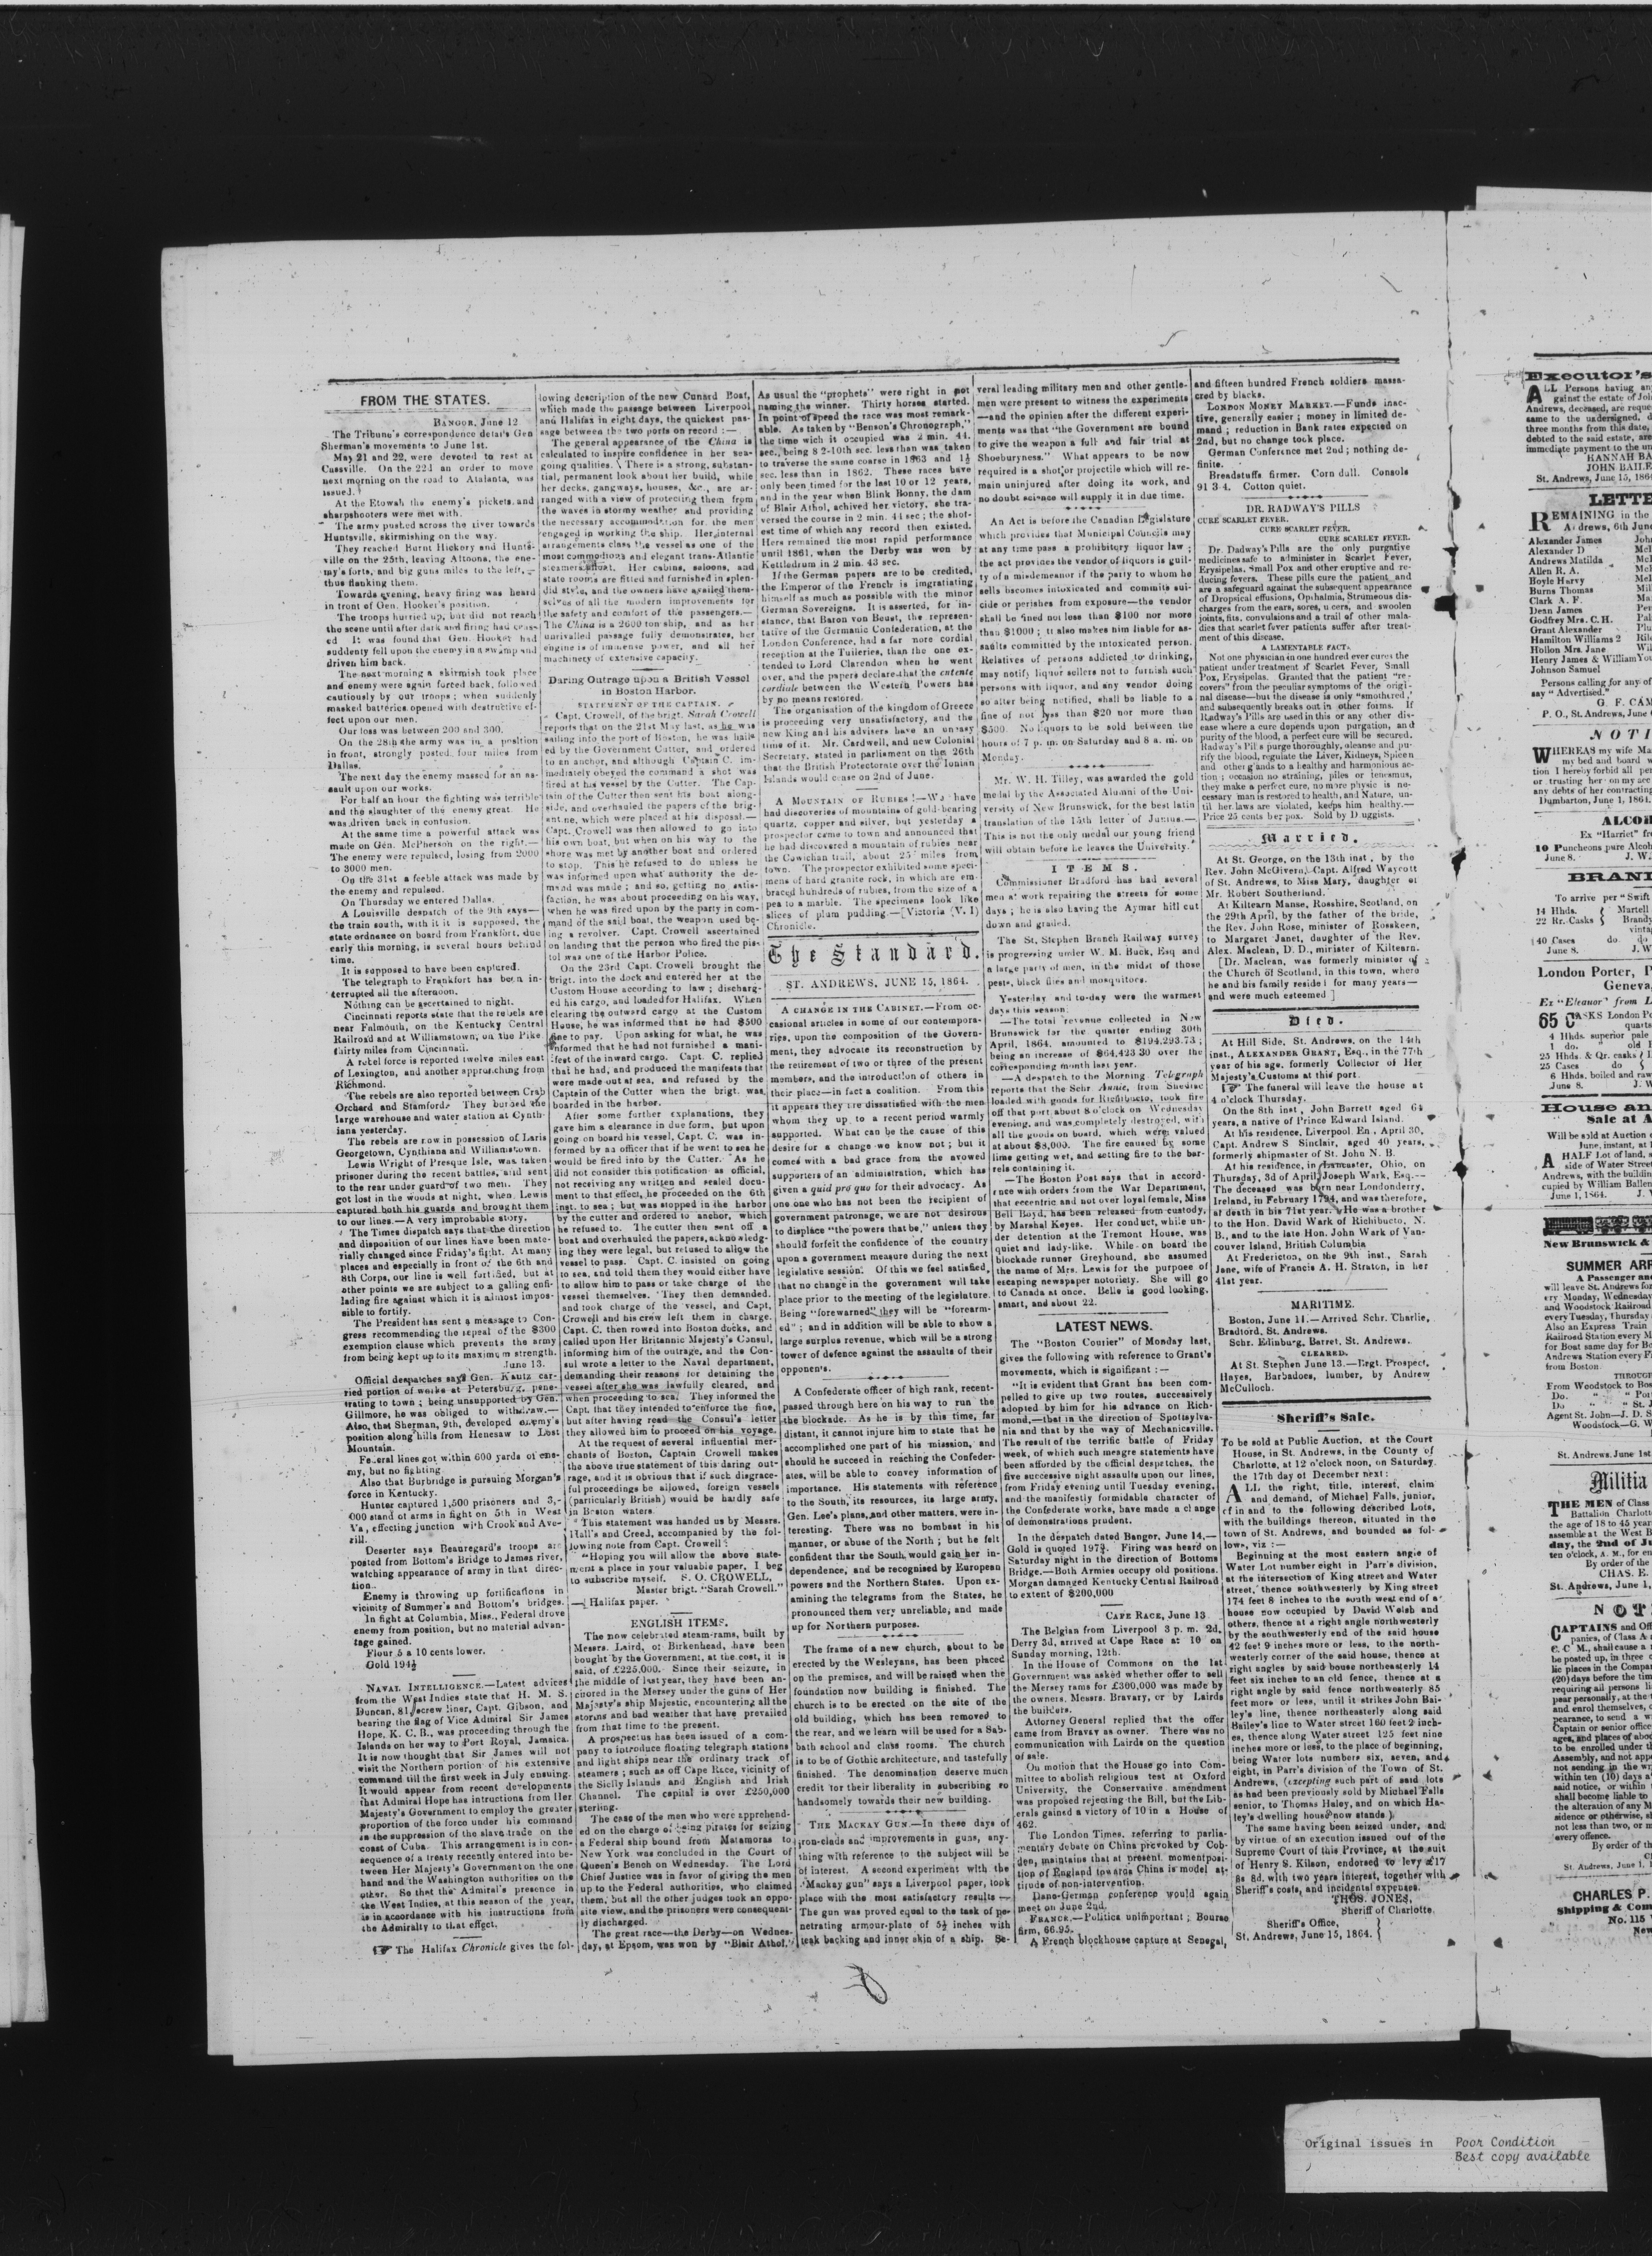 FROM THE STATES.
BANGOR, June 12
The Tribune's correspondence details Gen
Sherman's movements to June 1st.
May 21 and 22, were devoted to rest at
Cassville. On the 22d an order to move
next morning on the road to Atalanta, was
issued.
At the Etowah the enemy's pickets and
sharpshooters were met with.
The army pushed across the river towards
Huntsville, skirmishing on the way.
They reached Burnt Hickory and Hunts-
ville on the 25th, leaving Altoona, the ene-
my's forts, and big guns miles to the left,—
thus flanking them.
Towards evening, heavy firing was heard
in front of Gen. Hooker's position.
The troops hurried up, but did not reach
the scene until after dark and firing had ceas-
ed It was found that Gen. Hooker had
suddenly fell upon the enemy in a swamp and
driven him back.
The next morning a skirmish took place
and enemy were again forced back, followed
cautiously by our troops; when suddenly
masked batteries opened with destructive ef-
fect upon our men.
Our loss was between 200 and 300.
On the 28th the army was in a position
in front, strongly posted, four miles from
Dallas.
The next day the enemy massed for an as-
sault upon our works.
For half an hour the fighting was terrible
and the slaughter of the enemy great. He
was driven back in confusion.
At the same time a powerful attack was
made on Gen. McPherson on the right.—
The enemy were repulsed, losing from 2000
to 3000 men.
On the 31st a feeble attack was made by
the enemy and repulsed.
On Thursday we entered Dallas.
A Louisville despatch of the 9th says—
the train south, with it it is supposed, the
state ordnance on board from Frankfort, due
early this morning, is several hours behind
time.
It is supposed to have been captured.
The telegraph to Frankfort has been in-
terrupted all the afternoon.
Nothing can be ascertained to night.
Cincinnati reports state that the rebels are
near Falmouth, on the Kentucky Central
Railroad and at Williamstown, on the Pike
thirty miles from Cincinnati.
A rebel force is reported twelve miles east
of Lexington, and another approaching from
Richmond.
The rebels are also reported between Crab
Orchard and Stamford. They burned the
large warehouse and water station at Cynth-
iana yesterday.
The rebels are now in possession of Laris
Georgetown, Cynthiana and Williamstown.
Lewis Wright of Presque Isle, was taken
prisoner during the recent battles, and sent
to the rear under guard of two men. They
got lost in the woods at night, when Lewis
captured both his guards and brought them
to our lines.—A very improbable story.
The Times dispatch says that the direction
and disposition of our lines have been mate-
rially changed since Friday's fight. At many
places and especially in front of the 6th and
8th Corps, our line is well fortified, but at
other points we are subject to a galling enfi-
lading fire against which it is almost impos-
sible to fortify.
The President has sent a message to Con-
gress recommending the repeal of the $300
exemption clause which prevents the army
from being kept up to its maximum strength.
June 13.
Official despatches says Gen. Kautz car-
ried portion of works at Petersburg, pene-
trating to town; being unsupported by Gen.
Gillmore, he was obliged to withdraw.—
Also, that Sherman, 9th, developed enemy's
position along hills from Henesaw to Lost
Mountain.
Federal lines got within 600 yards of ene-
my, but no fighting.
Also that Burbridge is pursuing Morgan's
force in Kentucky.
Hunter captured 1,500 prisoners and 3,-
000 stand of arms in fight on 5th in West
Va, effecting junction with Crook and Ave-
rill.
Deserter says Beauregard's troops are
posted from Bottom's Bridge to James river,
watching appearance of army in that direc-
tion.
Enemy is throwing up fortifications in
vicinity of Summer's and Bottom's bridges.
In fight at Columbia, Miss., Federal drove
enemy from position, but no material advan-
tage gained.
Flour 5 a 10 cents lower.
Gold 194½
NAVAL INTELLIGENCE.—Latest advices
from the West Indies state that H. M. S.
Duncan, 81, screw liner, Capt. Gibson, and
bearing the flag of Vice Admiral Sir James
Hope, K. C. B., was proceeding through the
Islands on her way to Port Royal, Jamaica.
It is now thought that Sir James will not
visit the Northern portion of his extensive
command till the first week in July ensuing.
It would appear from recent developments
that Admiral Hope has intructions from Her
Majesty's Government to employ the greater
proportion of the force under his command
in the suppression of the slave trade on the
coast of Cuba. This arrangement is in con-
sequence of a treaty recently entered into be-
tween Her Majesty's Government on the one
hand and the Washington authorities on the
other. So that the Admiral's presence in
the West Indies, at this season of the year,
is in accordance with his instructions from
the Admiralty to that effect.
The Halifax Chronicle gives the fol-
lowing description of the new Cunard Boat,
which made the passage between Liverpool
and Halifax in eight days, the quickest pas-
sage between the two ports on record:—
The general appearance of the China is
calculated to inspire confidence in her sea-
going qualities. There is a strong, substan-
tial, permanent look about her build, while
her decks, gangways, houses, &c., are ar-
ranged with a view of protecting them from
the waves in stormy weather and providing
the necessary accommodation for the men
engaged in working the ship. Her internal
arrangements class the vessel as one of the
most commodious and elegant trans-Atlantic
steamers afloat. Her cabins, saloons, and
state rooms are fitted and furnished in splen-
did style, and the owners have availed them-
selves of all the modern improvements for
the safety and comfort of the passengers.—
The China is a 2600 ton ship, and as her
unrivalled passage fully demonstrates, her
engine is of immense power, and all her
machinery of extensive capacity.
Daring Outrage upon a British Vessel
in Boston Harbor.
STATEMENT OF THE CAPTAIN.
Capt. Crowell, of the brigt. Sarah Crowell
reports that on the 21st May last, as he was
sailing into the port of Boston, he was haile
ed by the Government Cutter, and ordered
to an anchor, and although Captain C. im-
mediately obeyed the command a shot was
fired at his vessel by the Cutter. The Cap-
tain of the Cutter then sent his boat along-
side, and overhauled the papers of the brig-
antine, which were placed at his disposal.—
Capt. Crowell was then allowed to go into
his own boat, but when on his way to the
shore was met by another boat and ordered
to stop. This he refused to do unless he
was informed upon what authority the de-
mand was made; and so, getting no satis-
faction, he was about proceeding on his way,
when he was fired upon by the party in com-
mand of the said boat, the weapon used be-
ing a revolver. Capt. Crowell ascertained
on landing that the person who fired the pis-
tol was one of the Harbor Police.
On the 23rd Capt. Crowell brought the
brigt. into the dock and entered her at the
Custom House according to law; discharg-
ed his cargo, and loaded for Halifax. When
clearing the outward cargo at the Custom
House, he was informed that he had $500
fine to pay. Upon asking for what, he was
informed that he had not furnished a mani-
fest of the inward cargo. Capt. C. replied
that he had, and produced the manifests that
were made out at sea, and refused by the
Captain of the Cutter when the brigt. was
boarded in the harbor.
After some further explanations, they
gave him a clearance in due form, but upon
going on board his vessel, Capt. C. was in-
formed by an officer that if he went to sea he
would be fired into by the Cutter. As he
did not consider this notification as official,
not receiving any written and sealed docu-
ment to that effect, he proceeded on the 6th
inst. to sea; but was stopped in the harbor
by the cutter and ordered to anchor, which
he refused to. The cutter then sent off a
boat and overhauled the papers, acknowledg-
ing they were legal, but refused to allow the
vessel to pass. Capt. C. insisted on going
to sea, and told them they would either have
to allow him to pass or take charge of the
vessel themselves. They then demanded,
and took charge of the vessel, and Capt.
Crowell and his crew left them in charge.
Capt. C. then rowed into Boston docks, and
called upon Her Britannic Majesty's Consul,
informing him of the outrage, and the Con-
sul wrote a letter to the Naval department,
demanding their reasons for detaining the
vessel after she was lawfully cleared, and
when proceeding to sea. They informed the
Capt. that they intended to enforce the fine,
but after having read the Consul's letter
they allowed him to proceed on his voyage.
At the request of several influential mer-
chants of Boston, Captain Crowell makes
the above true statement of this daring out-
rage, and it is obvious that if such disgrace-
ful proceedings be allowed, foreign vessels
(particularly British) would be hardly safe
in Boston waters.
This statement was handed us by Messrs.
Hall's and Creed, accompanied by the fol-
lowing note from Capt. Crowell:
"Hoping you will allow the above state-
ment a place in your valuable paper, I beg
to subscribe myself, F. O. CROWELL,
Master brigt. "Sarah Crowell."
—Halifax paper.
ENGLISH ITEMS.
The now celebrated steam-rams, built by
Messrs. Laird, of Birkenhead, have been
bought by the Government, at the cost, it is
said, of £225,000. Since their seizure, in
the middle of last year, they have been an-
chored in the Mersey under the guns of Her
Majesty's ship Majestic, encountering all the
storms and bad weather that have prevailed
from that time to the present.
A prospectus has been issued of a com-
pany to introduce floating telegraph stations
and light ships near the ordinary track of
steamers; such as off Cape Race, vicinity of
the Sicily Islands and English and Irish
Channel. The capital is over £250,000
sterling.
The case of the men who were apprehend-
ed on the charge of being pirates for seizing
a Federal ship bound from Matamoras to
New York was concluded in the Court of
Queen's Bench on Wednesday. The Lord
Chief Justice was in favor of giving the men
up to the Federal authorities, who claimed
them, but all the other judges took an oppo-
site view, and the prisoners were consequent-
ly discharged.
The great race—the Derby—on Wednes-
day, at Epsom, was won by "Blair Athol."
As usual the "prophets" were right in not
naming the winner. Thirty horses started.
In point of speed the race was most remark-
able. As taken by "Benson's Chronograph,"
the time wich it occupied was 2 min. 44.
sec., being 8 2-10th sec. less than was taken
to traverse the same coarse in 1863 and 1½
sec. less than in 1862. These races have
only been timed for the last 10 or 12 years,
and in the year when Blink Bonny, the dam
of Blair Athol, achived her victory, she tra-
versed the course in 2 min. 44 sec; the shot-
est time of which any record then existed.
Hers remained the most rapid performance
until 1861, when the Derby was won by
Kettledrum in 2 min. 43 sec.
If the German papers are to be credited,
the Emperor of the French is imgratiating
himself as much as possible with the minor
German Sovereigns. It is asserted, for in-
stance, that Baron von Beust, the represen-
tative of the Germanic Confederation, at the
London Conference, had a far more cordial
reception at the Tuileries, than the one ex-
tended to Lord Clarendon when he went
over, and the papers declare that the entente
cordiale between the Western Powers has
by no means restored.
The organisation of the kingdom of Greece
is proceeding very unsatisfactory, and the
new King and his advisers have an uneasy
time of it. Mr. Cardwell, and new Colonial
Secretary, stated in parliament on the 26th
that the British Protectorate over the Ionian
Islands would cease on 2nd of June.
A MOUNTAIN OF RUBIES!—We have
had discoveries of mountains of gold-bearing
quartz, copper and silver, but yesterday a
prospector came to town and announced that
he had discovered a mountain of rubies near
the Cowichan trail, about 25 miles from
town. The prospector exhibited some speci-
mens of hard granite rock, in which are em-
braced hundreds of rubies, from the size of a
pea to a marble. The specimens look like
slices of plum pudding.—[Victoria (V. I)
Chronicle.
The Standard.
ST. ANDREWS, JUNE 15, 1864.
A CHANGE IN THE CABINET.—From oc-
casional articles in some of our contempora-
ries, upon the composition of the Govern-
ment, they advocate its reconstruction by
the retirement of two or three of the present
members, and the introduction of others in
their place—in fact a coalition. From this
it appears they are dissatisfied with the men
whom they up to a recent period warmly
supported. What can be the cause of this
desire for a change we know not; but it
comes with a bad grace from the avowed
supporters of an administration, which has
given a quid pro quo for their advocacy. As
one who has not been the recipient of
government patronage, we are not desirous
to displace "the powers that be," unless they
should forfeit the confidence of the country
upon a government measure during the next
legislative session. Of this we feel satisfied,
that no change in the government will take
place prior to the meeting of the legislature.
Being "forewarned" they will be "forearm-
ed"; and in addition will be able to show a
large surplus revenue, which will be a strong
tower of defence against the assaults of their
opponents.
A Confederate officer of high rank, recent-
passed through here on his way to run the
the blockade. As he is by this time, far
distant, it cannot injure him to state that he
accomplished one part of his mission, and
should he succeed in reaching the Confeder-
ates, will be able to convey information of
importance. His statements with reference
to the South, its resources, its large army,
Gen. Lee's plans, and other matters, were in-
teresting. There was no bombast in his
manner, or abuse of the North; but he felt
confident that the South would gain her in-
dependence, and be recognised by European
powers and the Northern States. Upon ex-
amining the telegrams from the States, he
pronounced them very unreliable, and made
up for Northern purposes.
The frame of a new church, about to be
erected by the Wesleyans, has been placed
on the premises, and will be raised when the
foundation now building is finished. The
church is to be erected on the site of the
old building, which has been removed to
the rear, and we learn will be used for a Sab-
bath school and class rooms. The church
is to be of Gothic architecture, and tastefully
finished. The denomination deserve much
credit for their liberality in subscribing so
handsomely towards their new building.
THE MACKAY GUN.—In these days of
iron-clads and improvements in guns, any-
thing with reference to the subject will be
of interest. A second experiment with the
"Mackay gun" says a Liverpool paper, took
place with the most satisfactory results—
The gun was proved equal to the task of pe-
netrating armour-plate of 5½ inches with
teak backing and inner skin of a ship. Se-
veral leading military men and other gentle-
men were present to witness the experiments
—and the opinion after the different experi-
ments was that "the Government are bound
to give the weapon a full and fair trial at
Shoeburyness." What appears to be now
required is a shot or projectile which will re-
main uninjured after doing its work, and
no doubt science will supply it in due time.
An Act is before the Canadian Legislature
which provides that Municipal Councils may
at any time pass a prohibitory liquor law;
the act provides the vendor of liquors is guil-
ty of a misdemeanor if the party to whom he
sells becomes intoxicated and commits sui-
cide or perishes from exposure—the vendor
shall be fined not less than $100 nor more
than $1000; it also makes him liable for as-
saults committed by the intoxicated person.
Relatives of persons addicted to drinking,
may notify liquor sellers not to furnish such
persons with liquor, and any vendor doing
so after being notified, shall be liable to a
fine of not less than $20 nor more than
$500. No liquors to be sold between the
hours of 7 p. m. on Saturday and 8 a. m. on
Monday.
Mr. W. H. Tilley, was awarded the gold
medal by the Associated Alumni of the Uni-
versity of New Brunswick, for the best latin
translation of the 15th letter of Junius.—
This is not the only medal our young friend
will obtain before he leaves the University.
ITEMS.
Commissioner Bradford has had several
men at work repairing the streets for some
days; he is also having the Aymar hill cut
down and graded.
The St. Stephen Branch Railway survey
is progressing under W. M. Buck, Esq and
a large party of men, in the midst of those
pests, black flies and mosquitoes.
Yesterday and to-day were the warmest
days this season.
—The total revenue collected in New
Brunswick for the quarter ending 30th
April, 1864, amounted to $194,293.73;
being an increase of $64,423 30 over the
corresponding month last year.
—A despatch to the Morning Telegraph
reports that the Schr. Annie, from Shediac
loaded with goods for Richibucto, took fire
off that port about 8 o'clock on Wednesday
evening, and was completely destroyed, with
all the goods on board, which were valued
at about $8,000. The fire caused by some
lime getting wet, and setting fire to the bar-
rels containing it.
—The Boston Post says that in accord-
ance with orders from the War Department,
that eccentric and not over loyal female, Miss
Bell Boyd, has been released from custody,
by Marshal Keyes. Her conduct, while un-
der detention at the Tremont House, was
quiet and lady-like. While on board the
blockade runner Greyhound, she assumed
the name of Mrs. Lewis for the purpose of
escaping newspaper notoriety. She will go
to Canada at once. Belle is good looking,
smart, and about 22.
LATEST NEWS.
The "Boston Courier" of Monday last,
gives the following with reference to Grant's
movements, which is significant:—
"It is evident that Grant has been com-
pelled to give up two routes, successively
adopted by him for his advance on Rich-
mond,—that in the direction of Spottsylva-
nia and that by the way of Mechanicsville.
The result of the terrific battle of Friday
week, of which such meagre statements have
been afforded by the official despatches, the
five successive night assaults upon our lines,
from Friday evening until Tuesday evening,
and the manifestly formidable character of
the Confederate works, have made a change
of demonstrations prudent.
In the despatch dated Bangor, June 14,—
Gold is quoted 197¾. Firing was heard on
Saturday night in the direction of Bottoms
Bridge.—Both Armies occupy old positions.
Morgan damaged Kentucky Central Railroad
to extent of $200,000
CAPE RACE, June 13
The Belgian from Liverpool 3 p. m. 2d,
Derry 3d, arrived at Cape Race at 10 on
Sunday morning, 12th.
In the House of Commons on the 1st
Government was asked whether offer to sell
the Mersey rams for £300,000 was made by
the owners, Messrs. Bravary, or by Lairds
the builders.
Attorney General replied that the offer
came from Bravay as owner. There was no
communication with Lairds on the question
of sale.
On motion that the House go into Com-
mittee to abolish religious test at Oxford
University, the Conservative amendment
was proposed rejecting the Bill, but the Lib-
erals gained a victory of 10 in a House of
462.
The London Times, referring to parlia-
mentary debate on China provoked by Cob-
den, maintains that at present momentposi-
tion of England towards China is model at-
titude of non-intervention.
Dano-German conference would again
meet on June 2nd.
FRANCE.—Politics unimportant; Bourse
firm, 66.95.
A French blockhouse capture at Senegal,
and fifteen hundred French soldiers massa-
cred by blacks.
LONDON MONEY MARKET.—Funds inac-
tive, generally easier; money in limited de-
mand; reduction in Bank rates expected on
2nd, but no change took place.
German Conference met 2nd; nothing de-
finite.
Breadstuffs firmer. Corn dull. Consols
91 3-4. Cotton quiet.
DR. RADWAY'S PILLS
CURE SCARLET FEVER.
CURE SCARLET FEVER.
CURE SCARLET FEVER.
Dr. Dadway's Pills are the only purgative
medicines safe to administer in Scarlet Fever,
Erysipelas. Small Pox and other eruptive and re-
ducing fevers. These pills cure the patient and
are a safeguard against the subsequent appearance
of Dropsical effusions, Opthalmia, Strumeous dis-
charges from the ears, sores, ucers, and swoolen
joints, fits, convulsions and a trail of other mala-
dies that scarlet fever patients suffer after treat-
ment of this disease.
A LAMENTABLE FACT.
Not one physician in one hundred ever cures the
patient under treatment of Scarlet Fever, Small
Pox, Erysipelas. Granted that the patient "re-
covers" from the peculiar symptoms of the origi-
nal disease—but the disease is only "smothered,"
and subsequently breaks out in other forms. If
Radway's Pills are used in this or any other dis-
ease where a cure depends upon purgation, and
purity of the blood, a perfect cure will be secured.
Radway's Pills purge thoroughly, cleanse and pu-
rify the blood, regulate the Liver, Kidneys, Spleen
and other g ands to a healthy and harmonious ac-
tion; occasion no straining, piles or tenesmus,
they make a perfect cure, no more physic is ne-
cessary man is restored to health, and Nature, un-
til her laws are violated, keeps him healthy.—
Price 25 cents ber pox. Sold by D uggists.
Married.
At St. George, on the 13th inst, by the
Rev. John McGivern, Capt. Alfred Waycott
of St. Andrews, to Miss Mary, daughter of
Mr. Robert Southerland.
At Kiltearn Manse, Rosshire, Scotland, on
the 29th April, by the father of the bride,
the Rev. John Rose, minister of Rosskeen,
to Margaret Janet, daughter of the Rev.
Alex. Maclean, D. D., minister of Kiltearn.
[Dr. Maclean, was formerly minister of
the Church of Scotland, in this town, where
he and his family resided for many years—
and were much esteemed ]
Died.
At Hill Side, St. Andrews, on the 14th
inst., ALEXANDER GRANT, Esq., in the 77th
year of his age, formerly Collector of Her
Majesty's Customs at this port
The funeral will leave the house at
4 o'clock Thursday.
On the 8th inst, John Barrett aged 64
years, a native of Prince Edward Island.
At his residence, Liverpool. En, April 30,
Capt. Andrew S Sinclair, aged 40 years,
formerly shipmaster of St. John N. B.
At his residence, in Lancaster, Ohio, on
Thursday, 3d of April, Joseph Wark, Esq.—
The deceased was born near Londonderry,
Ireland, in February 1794, and was therefore,
at death in his 71st year. He was a brother
to the Hon. David Wark of Richibucto, N.
B., and to the late Hon. John Wark of Van-
couver Island, British Columbia
At Fredericton, on the 9th inst., Sarah
Jane, wife of Francis A. H. Straton, in her
41st year.
MARITIME.
Boston, June 11.—Arrived Schr. Charlie,
Bradford, St. Andrews.
Schr. Edinburg, Barret, St. Andrews.
CLEARED.
At St. Stephen June 13.—Brgt. Prospect,
Hayes, Barbadoes, lumber, by Andrew
McCulloch.
Sheriff's Sale.
To be sold at Public Auction, at the Court
House, in St. Andrews, in the County of
Charlotte, at 12 o'clock noon, on Saturday.
the 17th day of December next:
ALL the right, title, interest, claim
and demand, of Michael Falls, junior,
of in and to the following described Lots,
with the buildings thereon, situated in the
town of St. Andrews, and bounded as fol-
lows, viz:—
Beginning at the most eastern angle of
Water Lot number eight in Parr's division,
at the intersection of King street and Water
street, thence southwesterly by King street
174 feet 8 inches to the south west end of a
house now occupied by David Welsh and
others, thence at a right angle northwesterly
by the southwesterly end of the said house
42 feet 9 inches more or less, to the north-
westerly corner of the said house, thence at
right angles by said house northeasterly 14
feet six inches to an old fence, thence at a
right angle by said fence northwesterly 85
feet more or less, until it strikes John Bai-
ley's line, thence northeasterly along said
Bailey's line to Water street 160 feet 2 inch-
es, thence along Water street 125 feet nine
inches more or less, to the place of beginning,
being Water lots numbers six, seven, and
eight, in Parr's division of the Town of St.
Andrews, (excepting such part of said lots
as had been previously sold by Michael Falls
senior, to Thomas Haley, and on which Ha-
ley's dwelling house now stands.)
The same having been seized under, and
by virtue of an execution issued out of the
Supreme Court of this Province, at the suit
of Henry S. Kilson, endorsed to levy £17
8s 8d. with two years interest, together with
Sheriff's costs, and incidental expenses.
THOS. JONES,
Sheriff of Charlotte.
Sheriff's Office,
St. Andrews, June 15, 1864.
Executor's
ALL Persons having any
gainst the estate of Joh
Andrews, deceased, are reque
same to the undersigned,
three months from this date,
debted to the said estate, are
immediate payment to the un
HANNAH BA
JOHN BAILE
St. Andrews, June 15, 186
LETTE
REMAINING in the
Andrews, 6th June
Alexander James
Alexander D
Andrews Matilda
Allen R. A.
Boyle Harvy
Burns Thomas
Clark A. F.
Dean James
Godfrey Mrs. C. H.
Grant Alexander
Hamilton Williams 2
Hollon Mrs. Jane
Henry James & William
Johnson Samuel
Persons calling for any of
say "Advertised."
G. F. CAM
P. O., St. Andrews, June
NOTI
WHEREAS my wife Ma
my bed and board w
tion I hereby forbid all per
or trusting her on my acc
any debts of her contracting
Dumbarton, June 1, 1864.
ALCOH
Ex "Harriet" fr
10 Puncheons pure Alcoh
June 8. J. W.
BRAND
To arrive per "Swift
14 Hhds. Martell
22 Qr. Casks Brandy
vinta
40 Cases do. do
June 8. J. W
London Porter,
Geneva,
Ex "Eleanor" from L
65 CASKS London Po
quarts
4 Hhds. superior pale
1 do. " old
25 Hhds. & Qr. casks
25 Cases do
6 Hhds. boiled and raw
June 8. J.
House an
Sale at A
Will be sold at Auction
June, instant, at
A HALF Lot of land, a
side of Water Street
Andrews, with the building
cupied by William Ballen
June 1, 1864. J.
New Brunswick &
SUMMER ARR
A Passenger an
will leave St. Andrews for
ery Monday, Wednesday
and Woodstock Railroad
every Tuesday, Thursday
Also an Express Train
Railroad Station every M
for Boat same day for Bo
Andrews Station every F
from Boston
THROUGH
From Woodstock to Bos
Do. " " Por
Do " " St. J
Agent St. John—J. D. S
Woodstock—G. W
St. Andrews, June 1st
Militia
THE MEN of Class
Battalion Charlott
the age of 18 to 45 year
assemble at the West B
day, the 2nd of Ju
ten o'clock, A. M., for en
By order of the
CHAS. E.
St. Andrews, June 1,
NOT
CAPTAINS and Off
panies, of Class A
C. C M., shall cause a
be posted up, in three
lic places in the Compa
(20) days before the tim
requiring all persons li
pear personally, at the
and enrol themselves,
pearance, to send a w
Captain or senior office
ages, and places of abo
to be enrolled under t
Assembly, and not app
not sending in the wr
within ten (10) days a
said notice, or within
shall become liable to
the alteration of any M
sidence or otherwise, s
not less than two, or m
every offence.
By order of th
St. Andrews, June 1,
CHARLES P.
Shipping & Com
No. 115
New
Original issues in Poor Condition
Best copy available